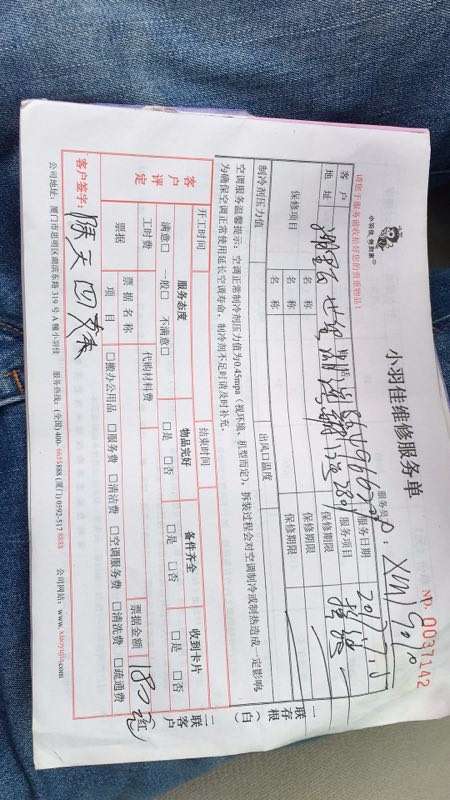 小羽佳维修服务单
NO. 0037142
小羽佳,特别家
请您于服务前收拾好您的贵重物品!
服务号: XMJ
客户
服务日期
2017.7.
地址
服务项目
保修项目
名称
保修期限
名称
保修期限
名称
保修期限
制冷剂压力值
出风口温度
空调服务温馨提示:空调正常制冷剂压力值为0.45mpa(视环境、机型而定),拆装过程会对空调制冷或制热造成一定影响
为确保空调正常使用延长空调寿命,制冷剂不足时请及时补充。
开工时间
结束时间
客户评定
服务态度
物品完好
备件齐全
收到卡片
满意□ 一般□ 不满意□
□是 □否
□是 □否
□是 □否
工时费
代购材料费
票据
票据名称
票据金额
180元
项目
□搬办公用品 □服务费 □清洁费 □空调服务费 □清洗费 □疏通费
客户签字:
一联存根(白)
二联客户
公司地址:厦门市思明区湖滨东路319号A幢小羽佳 服务热线:(全国)400-6631888 (厦门)0592-5178888 公司网站:www.xiaoyujia.com